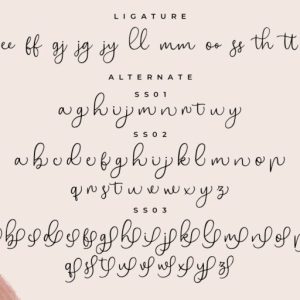 LIGATURE
ee ff gj jg jy ll mm oo ss th tt
ALTERNATE
SS01
a g h i j m n r t w y
SS02
a b c d e f g h i j k l m n o p
q r s t u v w x y z
SS03
b c d e f g h i j k l m n o
q s t u v w x y z